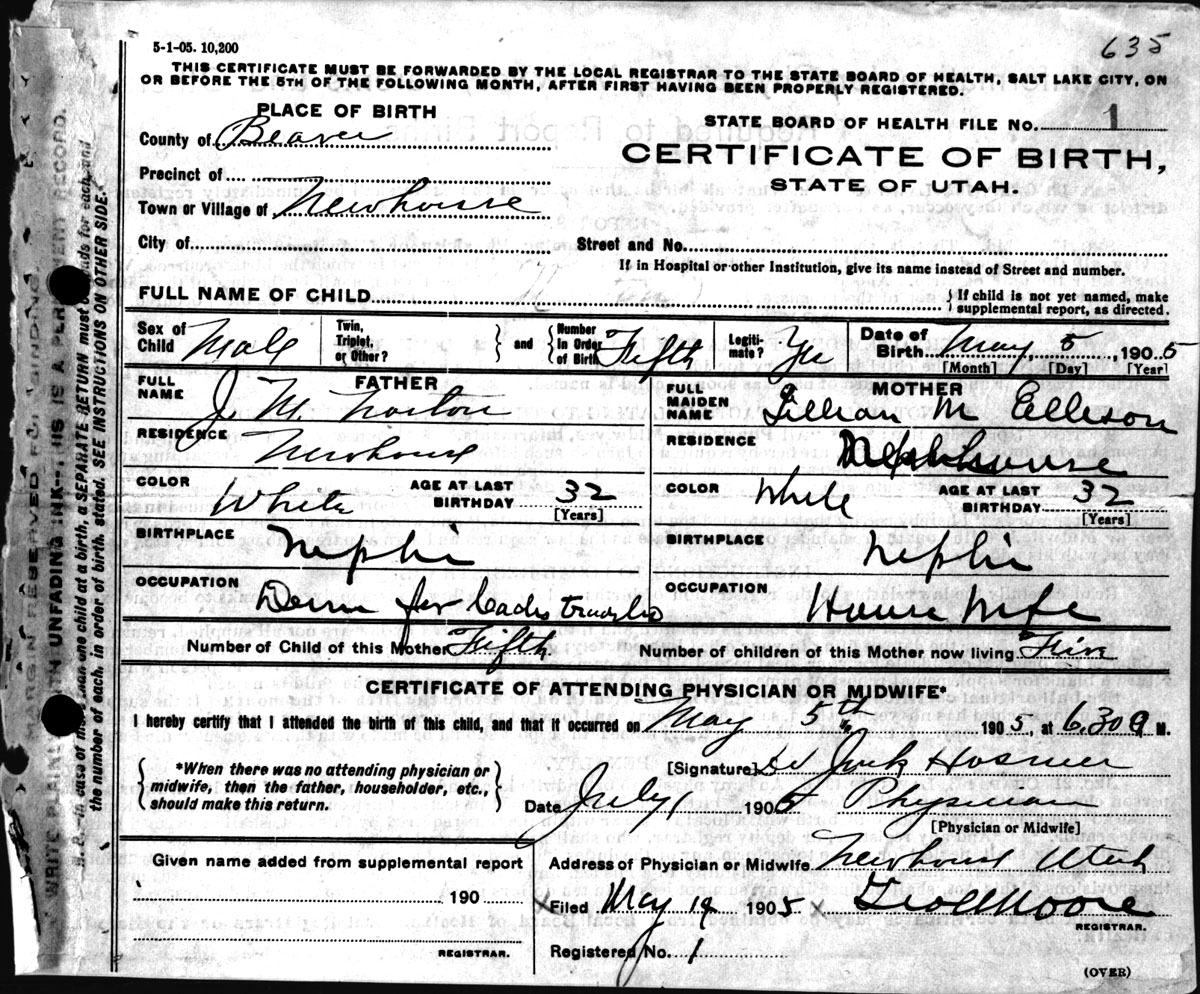 5-1-05. 10,200
635
THIS CERTIFICATE MUST BE FORWARDED BY THE LOCAL REGISTRAR TO THE STATE BOARD OF HEALTH, SALT LAKE CITY, ON
OR BEFORE THE 5TH OF THE FOLLOWING MONTH, AFTER FIRST HAVING BEEN PROPERLY REGISTERED.
PLACE OF BIRTH
STATE BOARD OF HEALTH FILE NO. 1
County of Beaver
CERTIFICATE OF BIRTH,
STATE OF UTAH.
Precinct of
Town or Village of Newhouse
City of
Street and No.
If in Hospital or other Institution, give its name instead of Street and number.
FULL NAME OF CHILD
{If child is not yet named, make
supplemental report, as directed.
Sex of Child Male
Twin, Triplet, or Other? } and { Number In Order of Birth Fifth
Legitimate? Yes
Date of Birth May 5, 1905
[Month] [Day] [Year]
FATHER
FULL NAME J. M. Norton
MOTHER
FULL MAIDEN NAME Lillian M Ellison
RESIDENCE Newhouse
RESIDENCE Newhouse
COLOR White
AGE AT LAST BIRTHDAY 32
[Years]
COLOR White
AGE AT LAST BIRTHDAY 32
[Years]
BIRTHPLACE Nephi
BIRTHPLACE Nephi
OCCUPATION
OCCUPATION House Wife
Number of Child of this Mother Fifth
Number of children of this Mother now living Five
CERTIFICATE OF ATTENDING PHYSICIAN OR MIDWIFE*
I hereby certify that I attended the birth of this child, and that it occurred on May 5th 1905, at 6.30 a M.
*When there was no attending physician or
midwife, then the father, householder, etc.,
should make this return.
[Signature] Hosmer
Date July 1 1905 Physician
[Physician or Midwife]
Given name added from supplemental report
190
REGISTRAR.
Address of Physician or Midwife Newhouse Utah
x Filed May 19 1905 x Moore
REGISTRAR.
Registered No. 1
(OVER)
MARGIN RESERVED FOR BINDING.
WRITE PLAINLY WITH UNFADING INK—THIS IS A PERMANENT RECORD.
N. B.—In case of more than one child at a birth, a SEPARATE RETURN must be made for each, and
the number of each, in order of birth, stated. SEE INSTRUCTIONS ON OTHER SIDE.